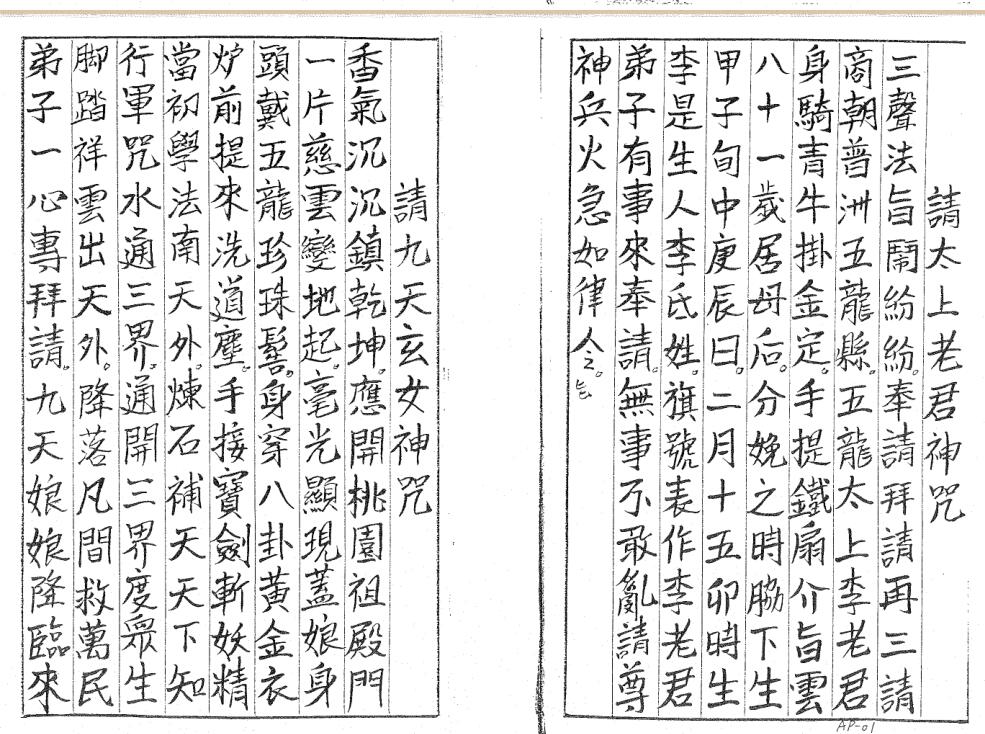 請太上老君神咒
三聲法旨鬧紛紛。奉請拜請再三請
商朝普洲五龍縣。五龍太上李老君
身騎青牛掛金定。手提鐵扇介旨雲
八十一歲居母后。分娩之時脇下生
甲子旬中庚辰曰。二月十五卯時生
李是生人李氏姓。旗號表作李老君
弟子有事來奉請。無事不敢亂請尊
神兵火急如律
請九天玄女神咒
香氣沉沉鎮乾坤。應開桃園祖殿門
一片慈雲變地起。毫光顯現蓋娘身
頭戴五龍珍珠髻。身穿八卦黃金衣
炉前提來洗道塵。手接寶劍斬妖精
當初學法南天外。煉石補天天下知
行軍咒水通三界。通開三界度眾生
脚踏祥雲出天外。降落凡間救萬民
弟子一心專拜請。九天娘娘降臨來
AP-01